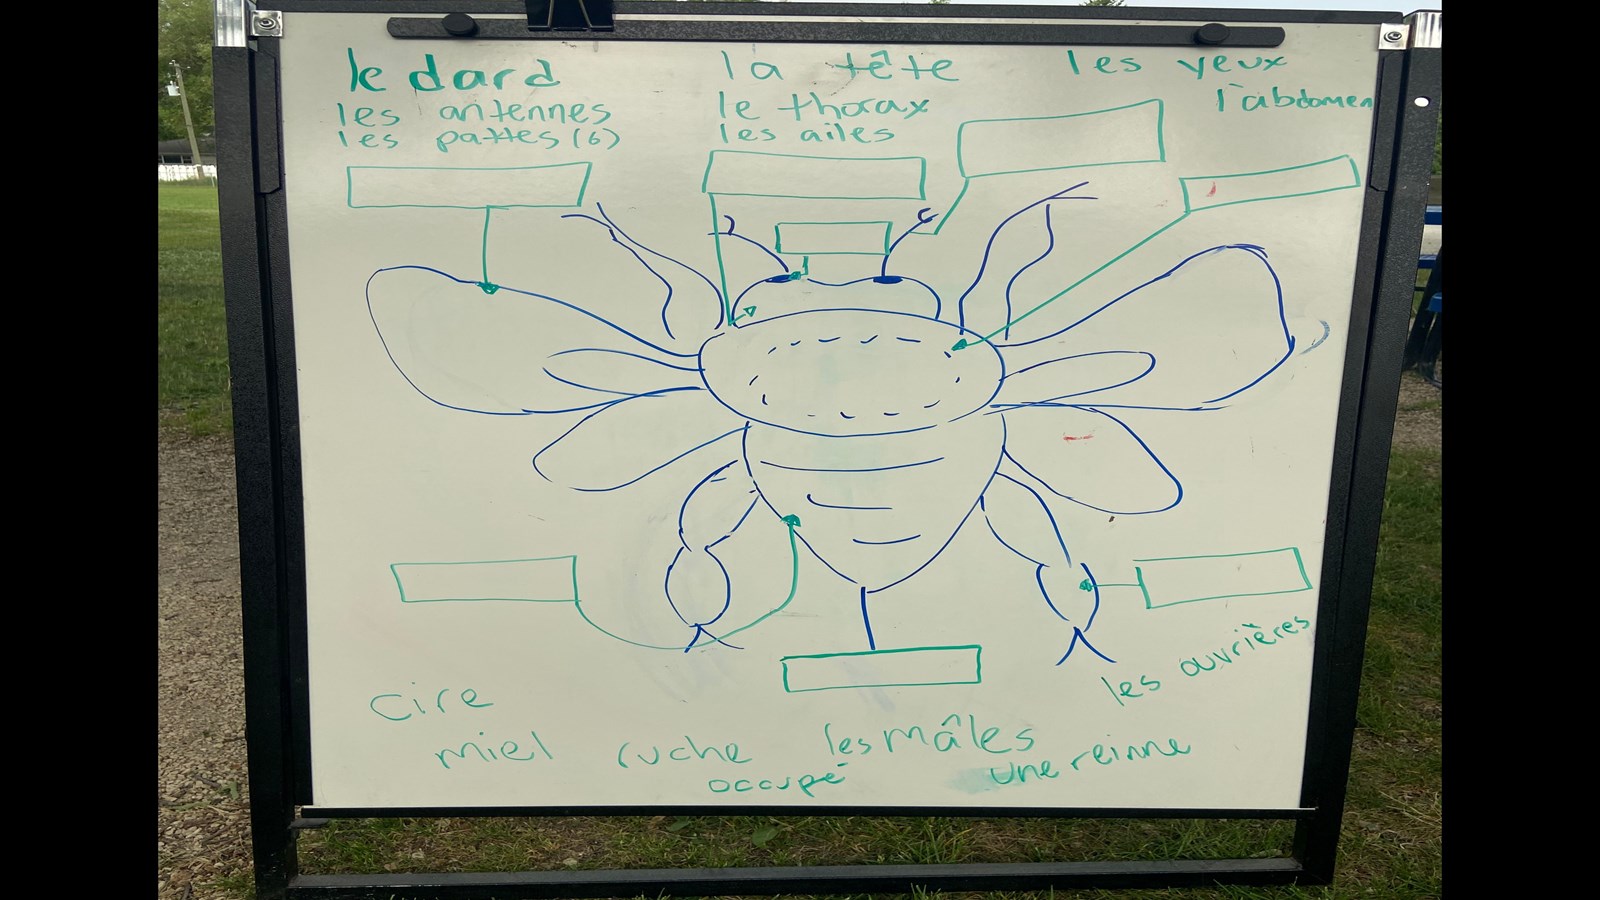 le dard
les antennes
les pattes (6)
la tête
le thorax
les ailes
les yeux
l'abdomen
les ouvrières
cire
miel
ruche
occupé
les mâles
une reinne